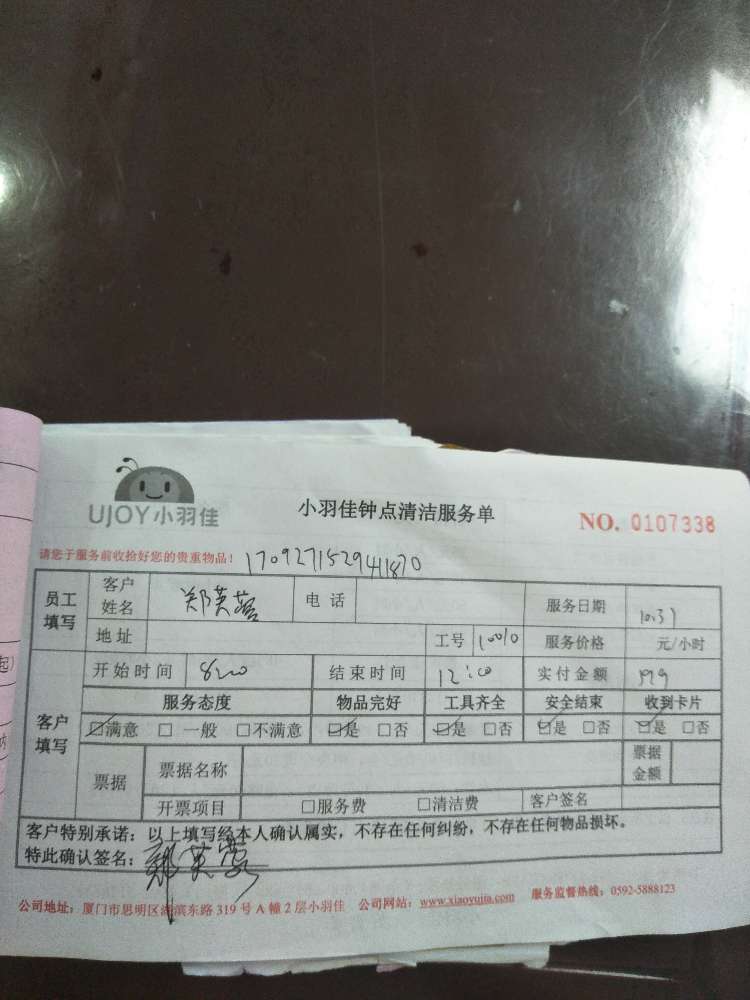 UJOY小羽佳
小羽佳钟点清洁服务单
NO. 0107338
请您于服务前收拾好您的贵重物品! 170927152941870
员工填写 客户姓名 郑芙蓉 电话 服务日期
地址 工号 10010 服务价格 元/小时
客户填写 开始时间 结束时间 12:00 实付金额 199
服务态度 物品完好 工具齐全 安全结束 收到卡片
☑满意 □ 一般 □不满意 ☑是 □否 ☑是 □否 ☑是 □否 ☑是 □否
票据 票据名称 票据金额
开票项目 □服务费 □清洁费 客户签名
客户特别承诺:以上填写经本人确认属实,不存在任何纠纷,不存在任何物品损坏。
特此确认签名:
公司地址:厦门市思明区湖滨东路 319 号 A 幢 2 层小羽佳 公司网站:www.xiaoyujia.com 服务监督热线:0592-5888123